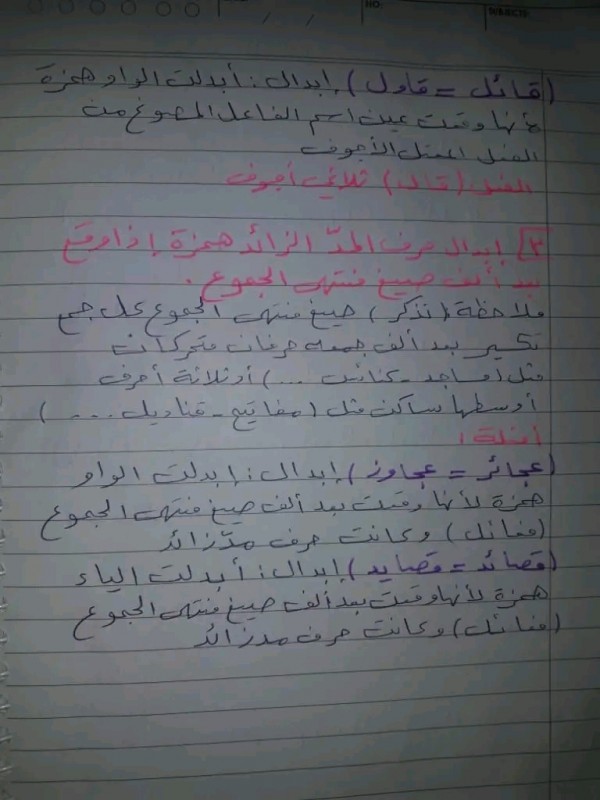 NO:
SUBJECT:
(قائل = قاول) إبدال : أبدلت الواو همزة
لأنها وقعت عين اسم الفاعل المصوغ من
الفعل المعتل الأجوف
الفعل (قال) ثلاثي أجوف
٣ إبدال حرف المدّ الزائد همزة إذا وقع
بعد ألف صيغ منتهى الجموع .
ملاحظة (تذكر) صيغ منتهى الجموع كل جمع
تكسير بعد ألف جمعه حرفان متحركان
مثل (مساجد - كنائس ...) أو ثلاثة أحرف
أوسطها ساكن مثل (مفاتيح - قناديل ....)
أمثلة :
(عجائز = عجاوز) إبدال : إبدلت الواو
همزة لأنها وقعت بعد ألف صيغ منتهى الجموع
(فعائل) وكانت حرف مدّ زائد
(قصائد = قصايد) إبدال : أبدلت الياء
همزة لأنها وقعت بعد ألف صيغ منتهى الجموع
(فعائل) وكانت حرف مد زائد